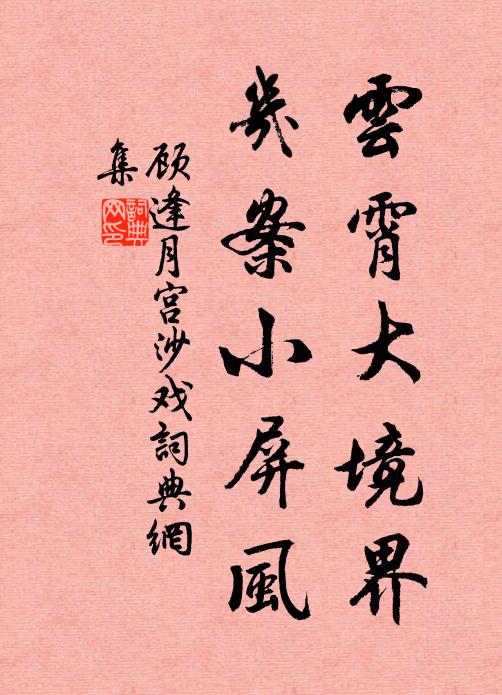 雲霄大境界
幾案小屏風
顾逢月宫沙戏詞典網
集
詞典
网印